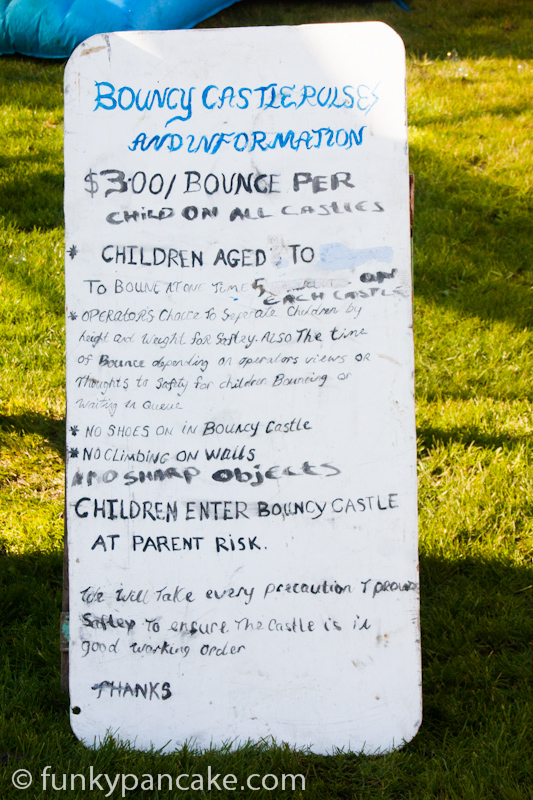 BOUNCY CASTLE RULSES
AND INFORMATION
$3.00/ BOUNCE PER
CHILD ON ALL CASTLES
* CHILDREN AGED TO
TO BOUNCE AT ONE TIME 5 ON
EACH CASTLE
* OPERATORS Choice To Seperate Children by
height and Weight for Saftey. Also The time
of Bounce depending on operators views OR
Thoughts to Safety for children Bouncing or
Waiting in Queue
* NO SHOES ON IN BOUNCY CASTLE
* NO CLIMBING ON WALLS
NO SHARP OBJECTS
CHILDREN ENTER BOUNCY CASTLE
AT PARENT RISK.
We Will Take every precaution T provide
Saftey To ensure The Castle is in
good working order
THANKS
© funkypancake.com